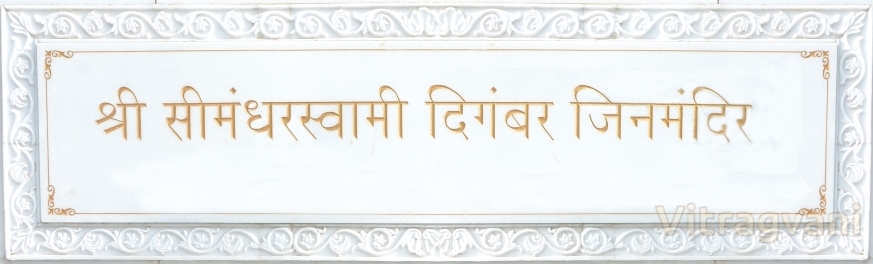 श्री सीमंधरस्वामी दिगंबर जिनमंदिर
Vitragvani